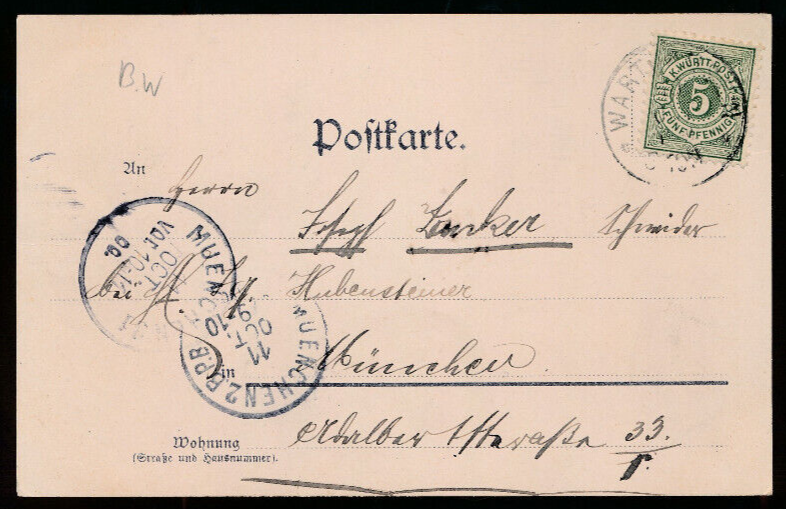 B.W
K.WÜRTT.POST
5
FÜNF PFENNIG
WART
Postkarte.
An
Herrn
Joseph Lenker Schneider
MUENCHEN
VOR. 10-11
OCT
bei H. Hubensteiner
11 OCT 9-10
MUENCHEN 2 B.P.B
in München.
Adalbertstraße 33/I.
Wohnung
(Straße und Hausnummer).